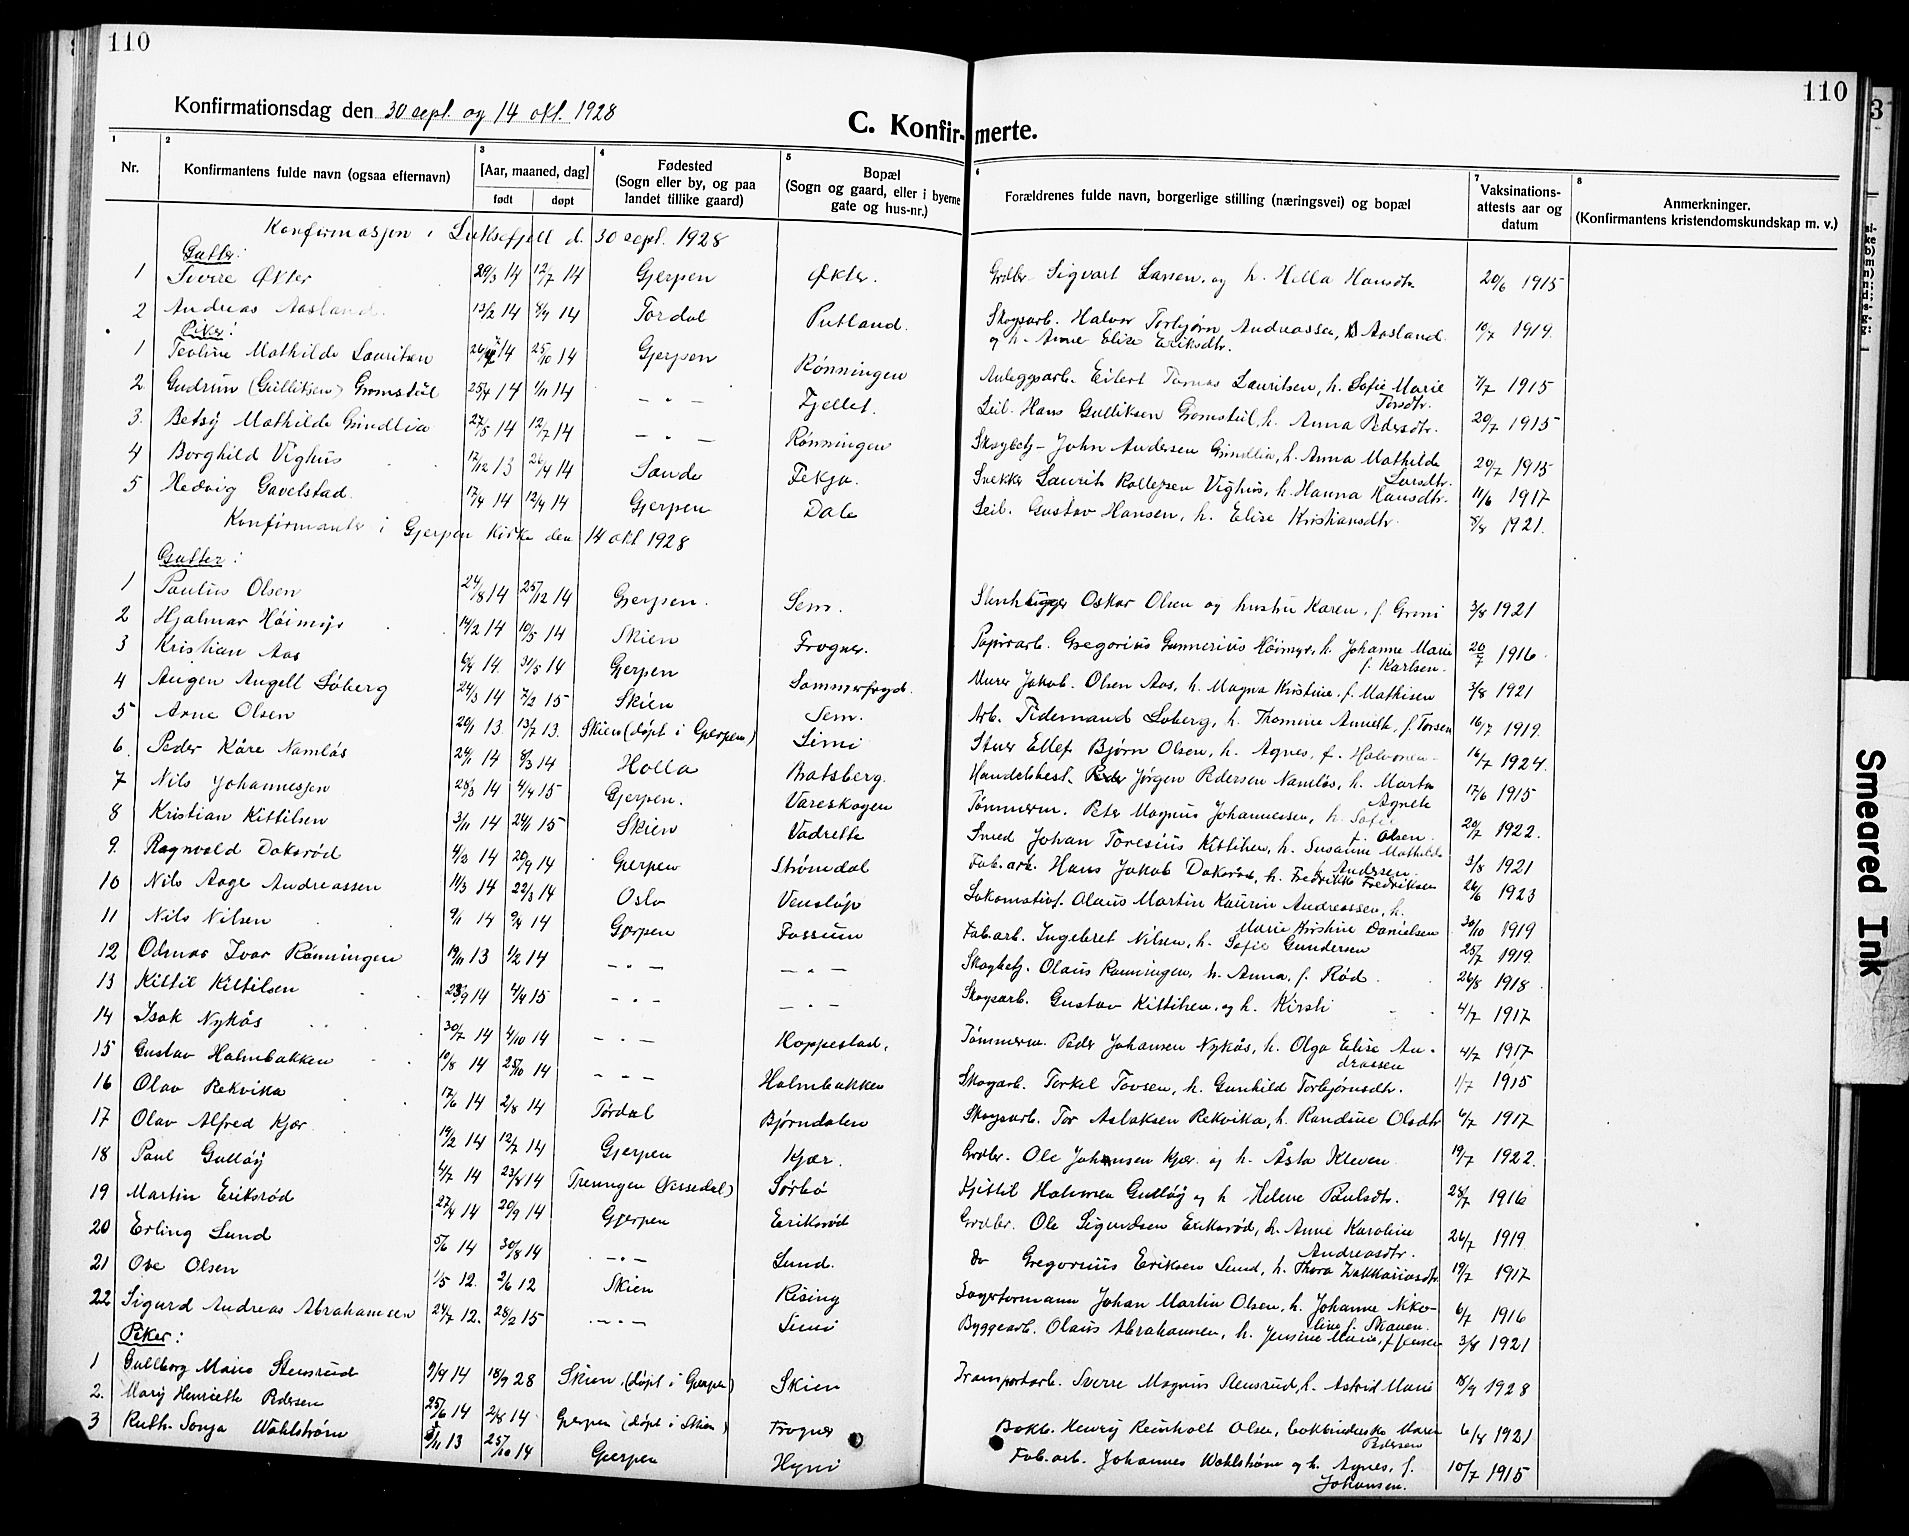 110
110
Konfirmationsdag den 30 sept. og 14 okt. 1928
C. Konfirmerte.
1 Nr.
2 Konfirmantens fulde navn (ogsaa efternavn)
3 [Aar, maaned, dag] født døpt
4 Fødested (Sogn eller by, og paa landet tillike gaard)
5 Bopæl (Sogn og gaard, eller i byerne gate og hus-nr.)
6 Forældrenes fulde navn, borgerlige stilling (næringsvei) og bopæl
7 Vaksinations-attests aar og datum
8 Anmerkninger. (Konfirmantens kristendomskundskap m. v.)
Konfirmasjon i Luksefjell d. 30 sept. 1928
Gutter:
1 Sverre Økter 29/3 14 12/7 14 Gjerpen Økter. Grdbr. Sigvart Larsen, og h. Hella Hansdtr. 20/6 1915
2 Andreas Aasland 13/2 14 8/4 14 Tørdal Putland. Skogsarb. Halvor Torbjørn Andreassen, Aasland og h. Anne Elise Eriksdtr. 10/7 1914
Piker:
1 Teoline Mathilde Lauritsen 14 25/10 14 Gjerpen Rønningen Anleggsarb. Eilert Tomas Lauritsen, h. Sofie Marie Torsdtr. 7/7 1915
2 Gudrun (Gulliksen) Gromstul 25/4 14 1/11 14 - " - Fjellet. Leil. Hans Gulliksen Gromstul, h. Anna Pedersdtr. 20/7 1915
3. Betsy Mathilde Grindlia 27/5 14 12/7 14 - " - Rønningen Skogbetj. John Andersen Grindlia, h. Anna Mathilde Larsdtr. 20/7 1915
4 Borghild Vighus 17/12 13 26/4 14 Sande Fekja. Snekker Laurits Vighus, h. Hanna Hansdtr. 11/6 1917
5 Hedvig Gavelstad 17/4 14 12/4 14 Gjerpen Dale Leil. Gustav Hansen, h. Elise Kristiansdtr. 5/8 1921.
Konfirmanter i Gjerpen kirke den 14 okt 1928
Gutter:
1 Paulus Olsen 24/8 14 25/12 14 Gjerpen. Sem. Oskar Olsen og hustru Karen, f. Grini 3/8 1921
2 Hjalmar Høimyr 14/2 14 10/5 14 Skien Frogner. Papirarb. Gregorius Gunnerius Høimyr, h. Johanne Marie f. Karlsen. 20/7 1916
3 Kristian Aas 6/4 14 31/5 14 Gjerpen Sommerfryd. Murer Jakob Olsen Aas, h. Magna Kristine, f. Mathisen 3/8 1921
4 Angell Loberg 24/3 14 7/2 15 Skien Sem. Arb. Tidemand Loberg, h. Thomine Annette, f. Torsen 16/7 1919.
5 Arne Olsen 20/1 13 13/7 13. Skien (døpt i Gjerpen) Limi Stuer Ellef Bjørn Olsen, h. Agnes, f. Halvorsen 16/7 1924.
6. Peder Kåre Namløs 24/1 14 8/3 14 Holla Bratsberg. Handelsbest. Jørgen Pedersen Namløs, h. Marta Agnete 17/6 1915
7 Nils Johannessen 28/3 14 4/4 15 Gjerpen. Vareskogen Tømmerm. Peter Magnus Johannessen, h. Sofie f. Olsen. 20/7 1922.
8 Kristian Kittilsen 3/11 14 24/1 15 Skien Vadrette Smed Johan Toresius Kittilsen, h. Susanne Mathilde f. Andersen. 3/8 1921
9. Ragnvald Doksrød 4/3 14 20/9 14 Gjerpen Strømdal Fab.arb. Hans Jakob Doksrød, h. Fredrikke Fredriksen 26/6 1923
10 Nils Aage Andreassen 11/3 14 22/3 14 Oslo Venstøp Lokomotivf. Olaus Martin Kaurin Andreassen, h. Marie Kirstine Danielsen 30/10 1919
11 Nils Nilsen 9/1 14 9/4 14 Gjerpen Fossum Fab.arb. Ingebret Nilsen, h. Sofie Gundersen 25/7 1919.
12 Odmar Ivar Rønningen 19/11 13 1/2 14 - " - - " - Skogbetj. Olaus Rønningen, h. Anna, f. Rød. 26/8 1918
13 Kittil Kittilsen 23/9 14 4/4 15 - " - - " - Skogsarb. Gustav Kittilsen, og h. Kirsti 4/7 1917
14 Isak Nykås 30/7 14 4/10 14 - " - Hoppestad. Tømmerm. Peder Johansen Nykås, h. Olga Elise Andreassen 4/7 1917
15 Gustav Holmbakken 10/8 14 25/10 14 - " - Holmbakken Skogarb. Terkel Tovsen, h. Gunhild Torbjørnsdtr. 1/7 1915
16 Olav Rekvika 17/6 14 2/8 14 Tørdal Bjørndalen Skogsarb. Tor Aslaksen Rekvika, h. Randine Olsdtr 6/7 1917
17 Olav Alfred Kjær 19/2 14 12/7 14 Gjerpen Kjær. Grdbr. Ole Johansen Kjær og h. Åsta Kleven 19/7 1922.
18 Paul Gulløy 4/7 14 23/8 14 Treungen (Nissedal) Sørbø Kjittil Halvorsen Gulløy og h Helene Paulsdtr. 28/7 1916
19 Martin Eriksrød 27/4 14 20/9 14 Gjerpen Eriksrød Grdbr. Ole Sigurdsen Eriksrød, h. Anne Karoline Andreasdtr. 26/7 1919
20 Erling Lund 5/6 14 30/8 14 - " - Lund. do Gregorius Eriksen Lund, h. Thora Zakkariasdtr 19/7 1917
21 Ove Olsen 1/5 12. 2/6 12 Skien Rising Lagerformann Johan Martin Olsen, h. Johanne Nikoline f. Skauen. 6/7 1916
22 Sigurd Andreas Abrahamsen 24/7 12. 28/2 15 - " - Limi Byggearb. Olaus Abrahamsen, h. Jensine Marie, f. Jensen 3/8 1921
Piker:
1 Gullborg Marie Stensrud 9/9 14 18/9 28 Skien. (døpt i Gjerpen) Skien Transportarb. Sverre Magnus Stensrud, h. Astrid Marie 18/9 1928
2. Mary Henriette Pedersen 25/6 14 2/8 14 Gjerpen (døpt i Skien) Frogner Bokb. Henry Reinholt Olsen, bokbinderske Maren Pedersen 6/8 1921
3 Ruth Sonja Wahlstrøm 13 25/10 14 Gjerpen Hyni Fab.arb. Johannes Wahlstrøm og h. Agnes, f. Johansen. 10/7 1915
Smeared Ink